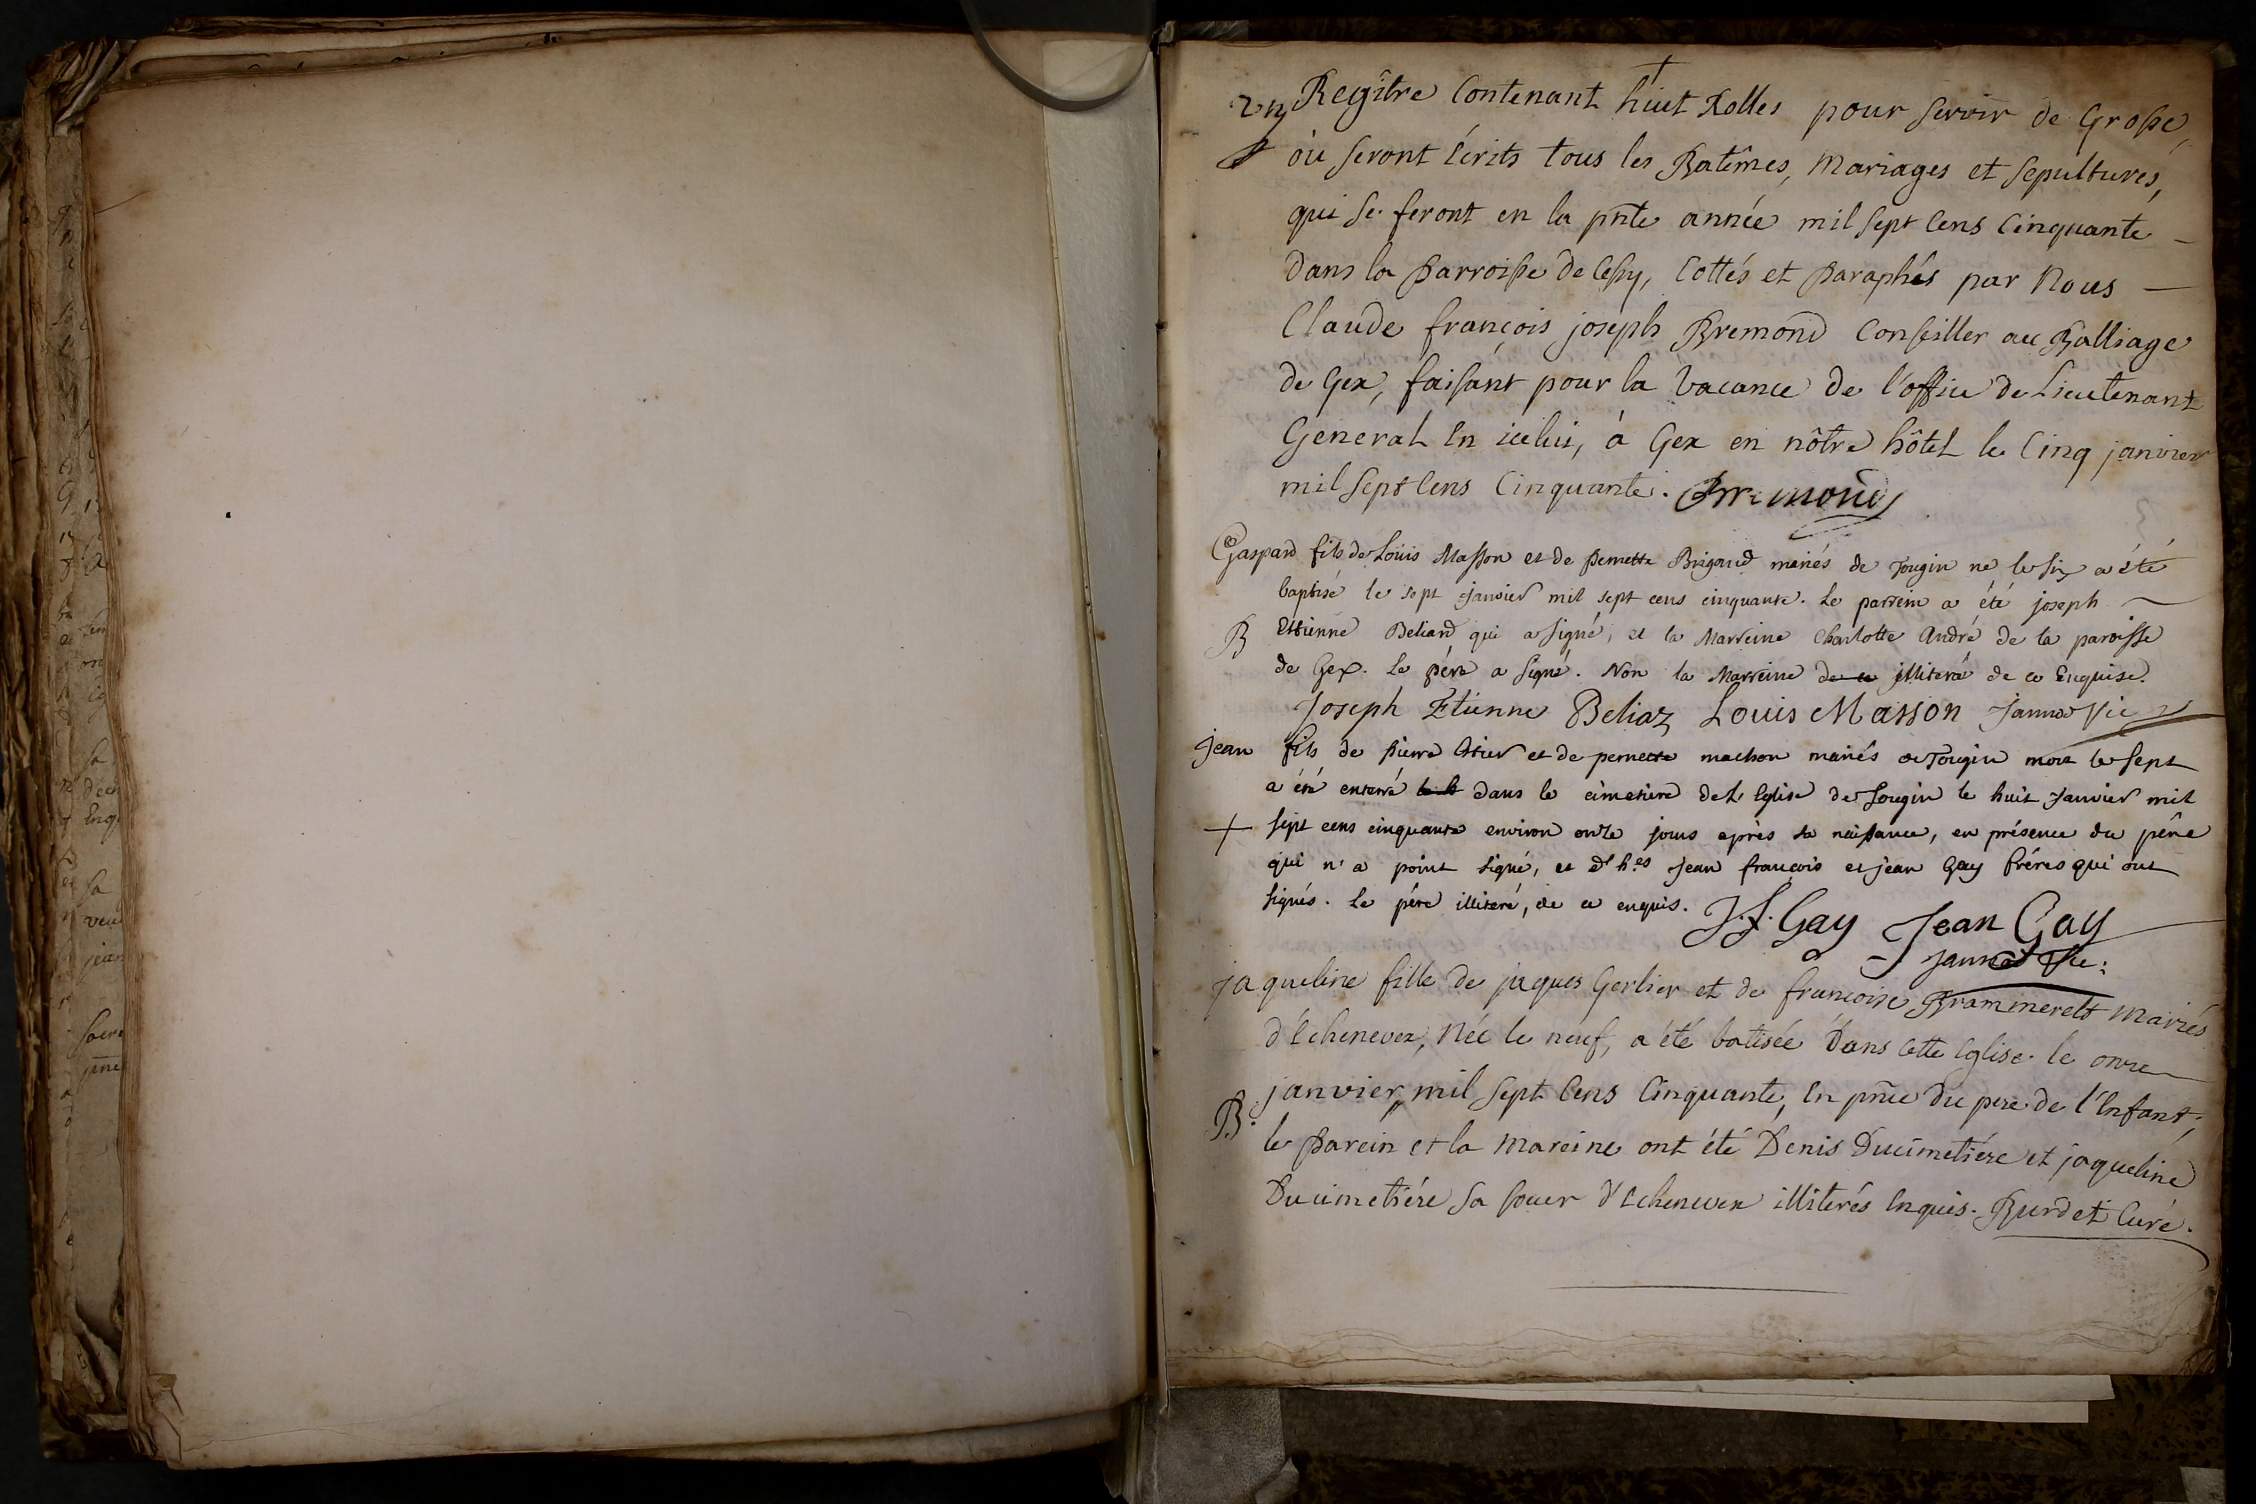 +
Regître Contenant huit Rolles pour servir de Grosse,
où seront écrits tous les Batêmes, Mariages et sepultures,
qui se feront en la pnte année mil sept cens cinquante –
Dans la parroisse de Cessy, Cottés et paraphés par Nous —
Claude françois joseph Bremond Conseiller au Balliage
de Gex, faisant pour la vacance de l'office de Lieutenant
General en icelui, à Gex en nôtre hôtel le cinq janvier
mil sept cens cinquante. Bremond
Gaspard fils de Loüis Masson et de pernette Brigand mariés de Tougin né le six a été
baptisé le sept janvier mil sept cens cinquante. Le parrein a été joseph
B Ettienne Beliard qui a signé, et la Marreine Charlotte André de la paroisse
de Gex. Le pére a signé. Non la Marreine de ce illiteré de ce Enquise.
Joseph Etienne Beliaz Louis Masson Jannot Vic
jean fils de pierre et de pernette machon mariés de Tougin mort le sept
a été enterré dans le cimetiere de l'Eglise de Tougin le huit Janvier mil
+ sept cens cinquante environ onze jours après sa naissance, en présence du pére
qui n'a point signé, et d'h.es Jean françois et jean Gay fréres qui ont
signés. Le pére illiteré, de ce enquis. J. f. Gay Jean Gay
Jannot Vic:
jaqueline fille de jaques Gerlier et de françoise Brammerelt Mariés
d'Echenevex, Née le neuf, a été batisée Dans cette Eglise le onze
janvier, mil sept cens cinquante, en pnce du pere de l'Enfant;
B. le parein et la mareine ont été Denis Ducimetiére et jaqueline
Ducimetiére sa soeur d'Echenevex illiterés enquis. Burdet Curé.